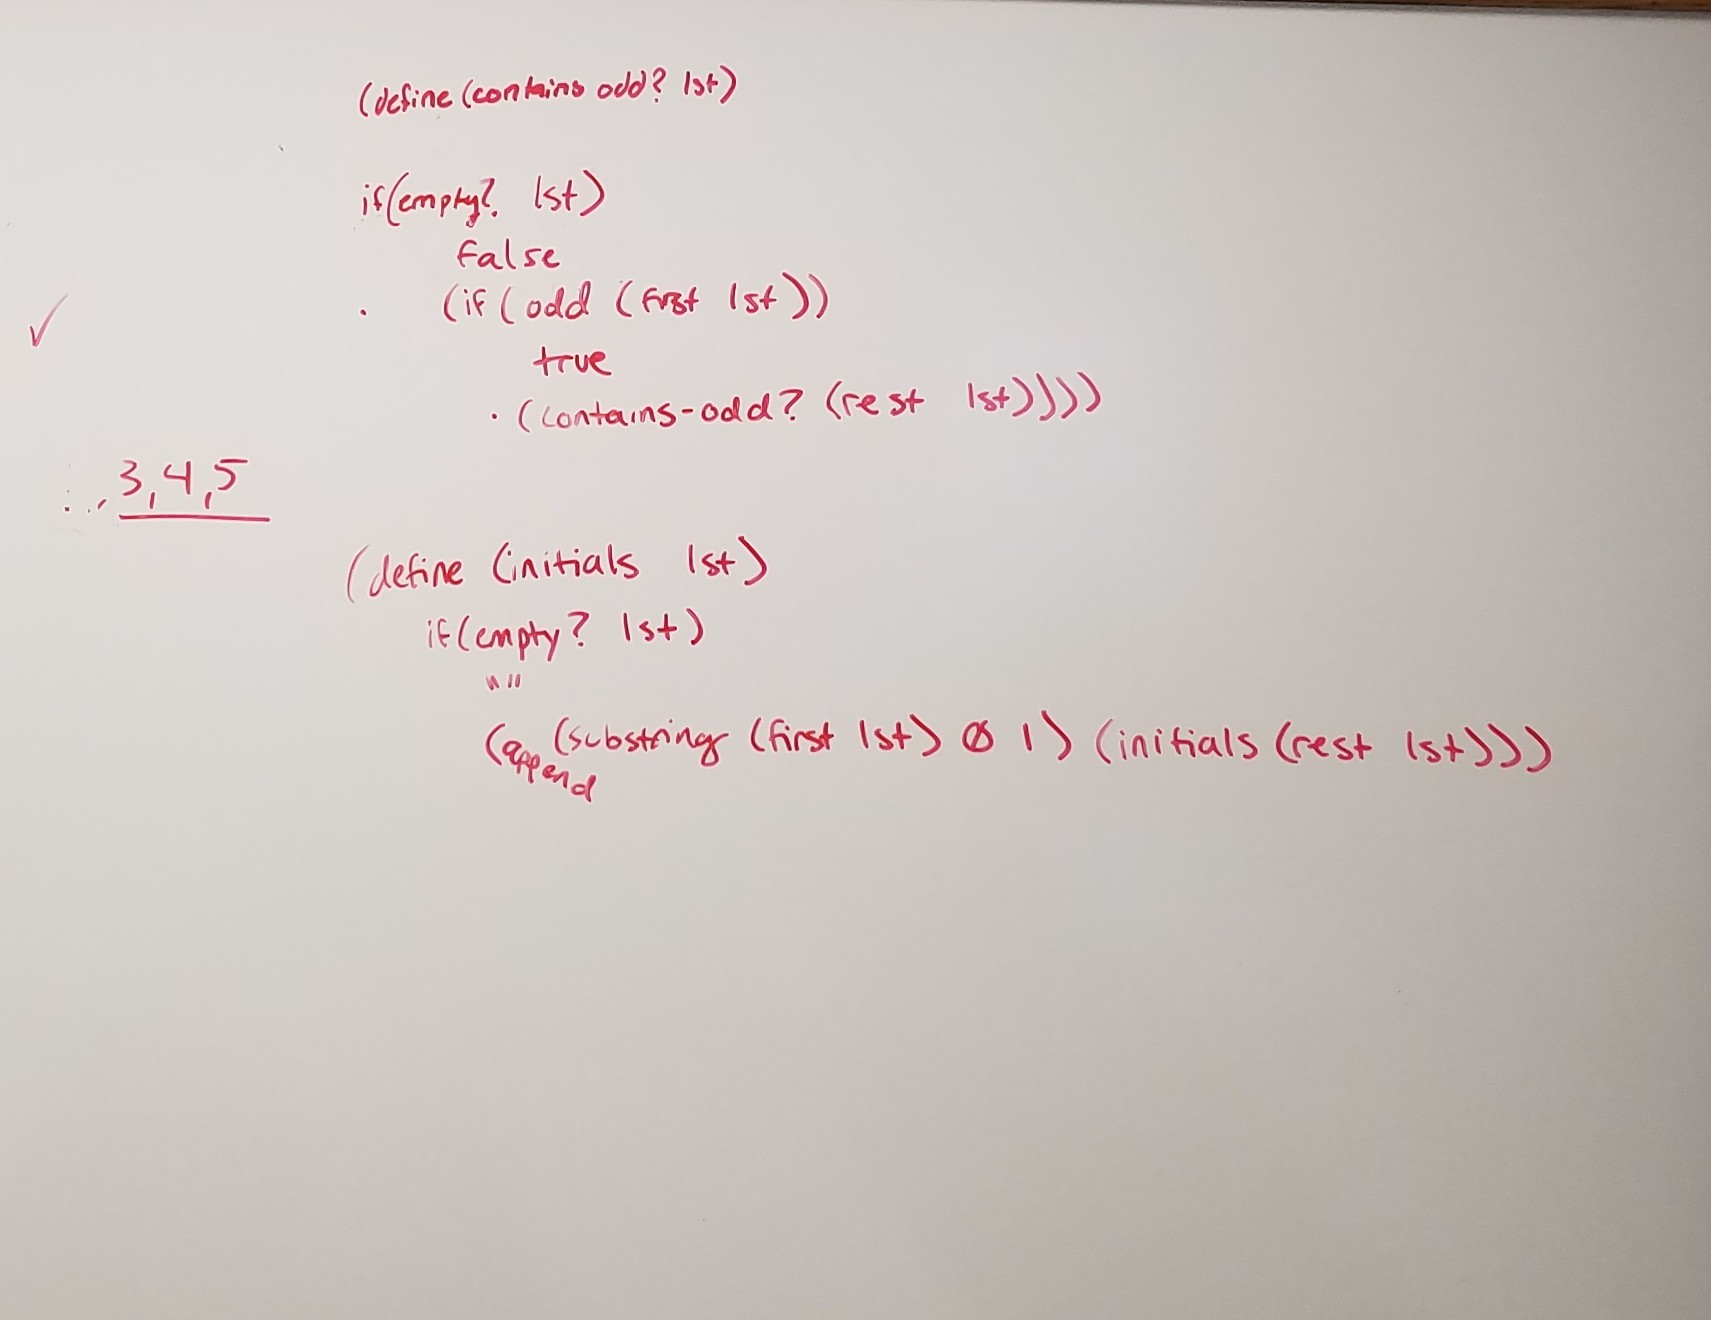 (define (contains odd? lst)
if(empty? lst)
false
(if (odd (first lst))
true
(contains-odd? (rest lst))))
3,4,5
(define (initials lst)
if(empty? lst)
""
(append (substring (first lst) 0 1) (initials (rest lst)))